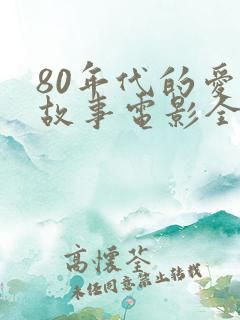 80年代的爱
故事电影全
高怀荃
未经同意禁止转载